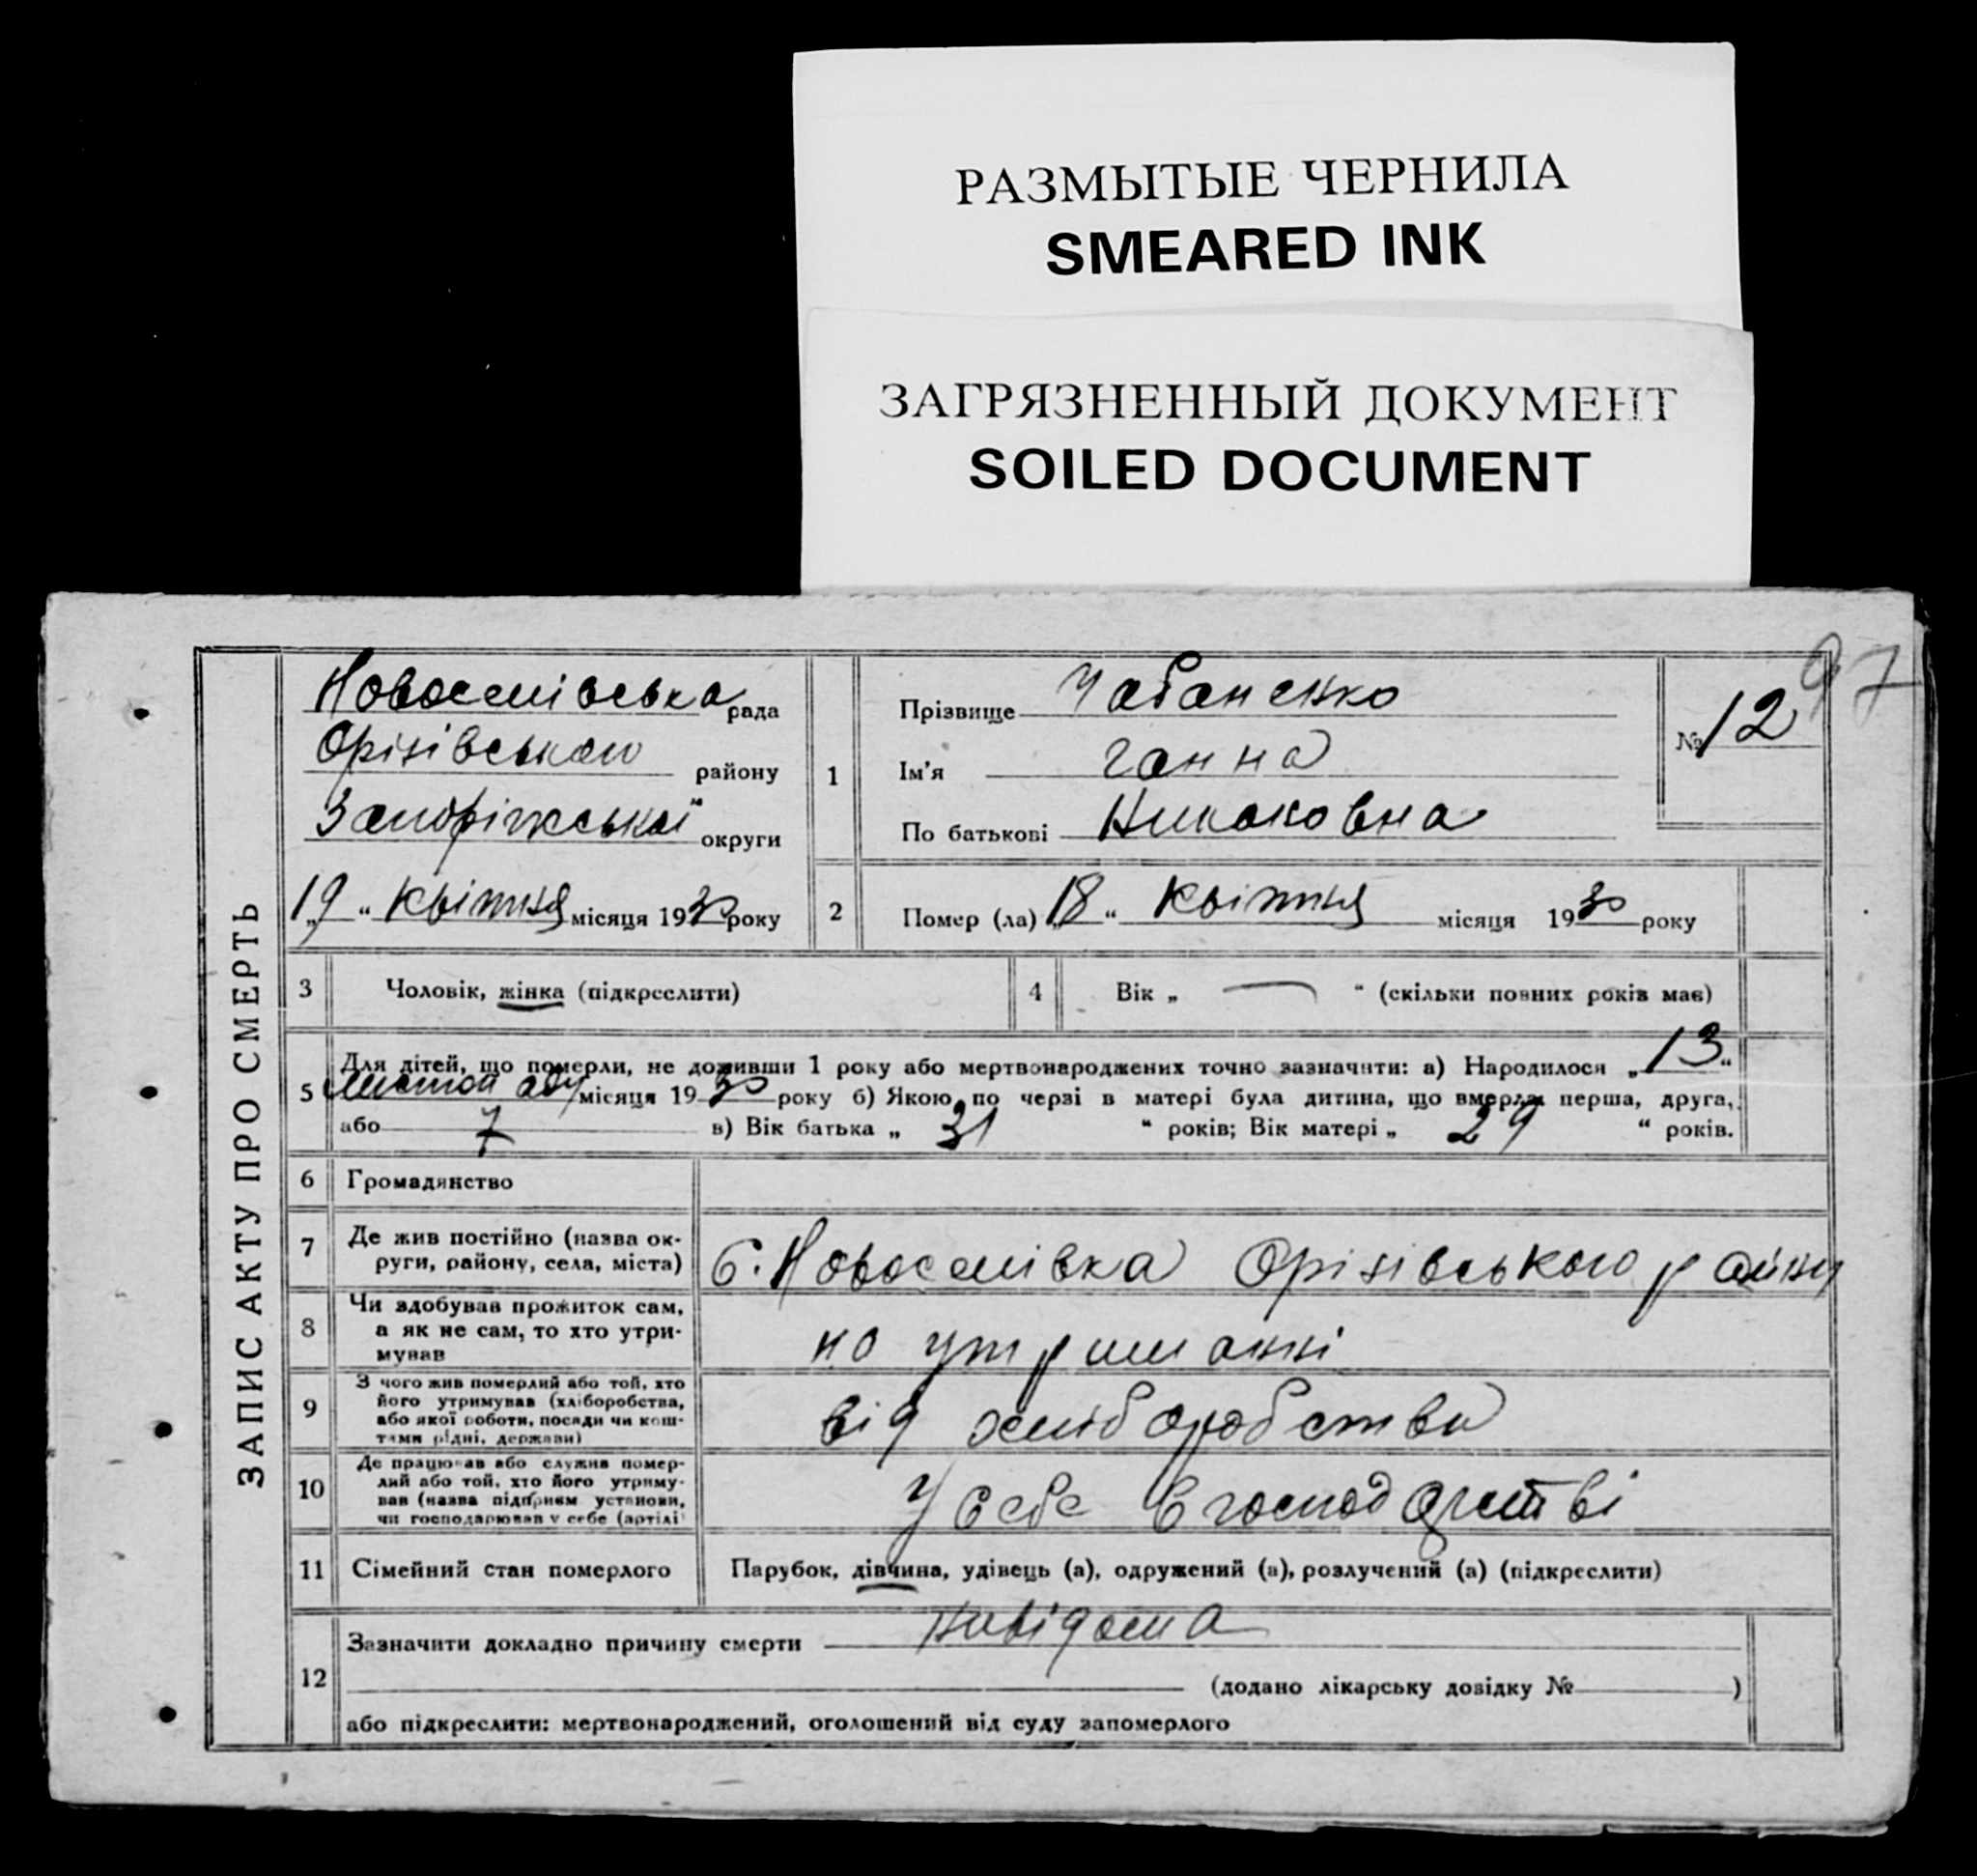 РАЗМЫТЫЕ ЧЕРНИЛА
SMEARED INK
ЗАГРЯЗНЕННЫЙ ДОКУМЕНТ
SOILED DOCUMENT
97
ЗАПИС АКТУ ПРО СМЕРТЬ
Новоселівська рада
Оріхівського району
Запоріжської округи
„19“ Квітня місяця 1930 року
1
Прізвище Чабаненко
Ім'я Ганна
По батькові
№ 12
2
Помер (ла) „18“ Квітня місяця 1930 року
3 Чоловік, жінка (підкреслити)
4 Вік „ — “ (скільки повних років мав)
5 Для дітей, що померли, не доживши 1 року або мертвонароджених точно зазначити: а) Народилося „13“
місяця 1930 року б) Якою по черзі в матері була дитина, що вмерла: перша, друга,
або 7 в) Вік батька „31“ років; Вік матері „29“ років.
6 Громадянство
7 Де жив постійно (назва ок-
руги, району, села, міста) с. Новоселівка Оріхівського району
8 Чи здобував прожиток сам,
а як не сам, то хто утри-
мував
на утриманні
9 З чого жив померлий або той, хто
його утримував (хліборобства,
або якої роботи, посади чи кош-
тами рідні, держави)
від хліборобства
10 Де працював або служив помер-
лий або той, хто його утриму-
вав (назва підприєм установи,
чи господарював у себе (артілі)
У себе в господарстві
11 Сімейний стан померлого Парубок, дівчина, удівець (а), одружений (а), розлучений (а) (підкреслити)
12 Зазначити докладно причину смерти невідома
(додано лікарську довідку № )
або підкреслити: мертвонароджений, оголошений від суду запомерлого